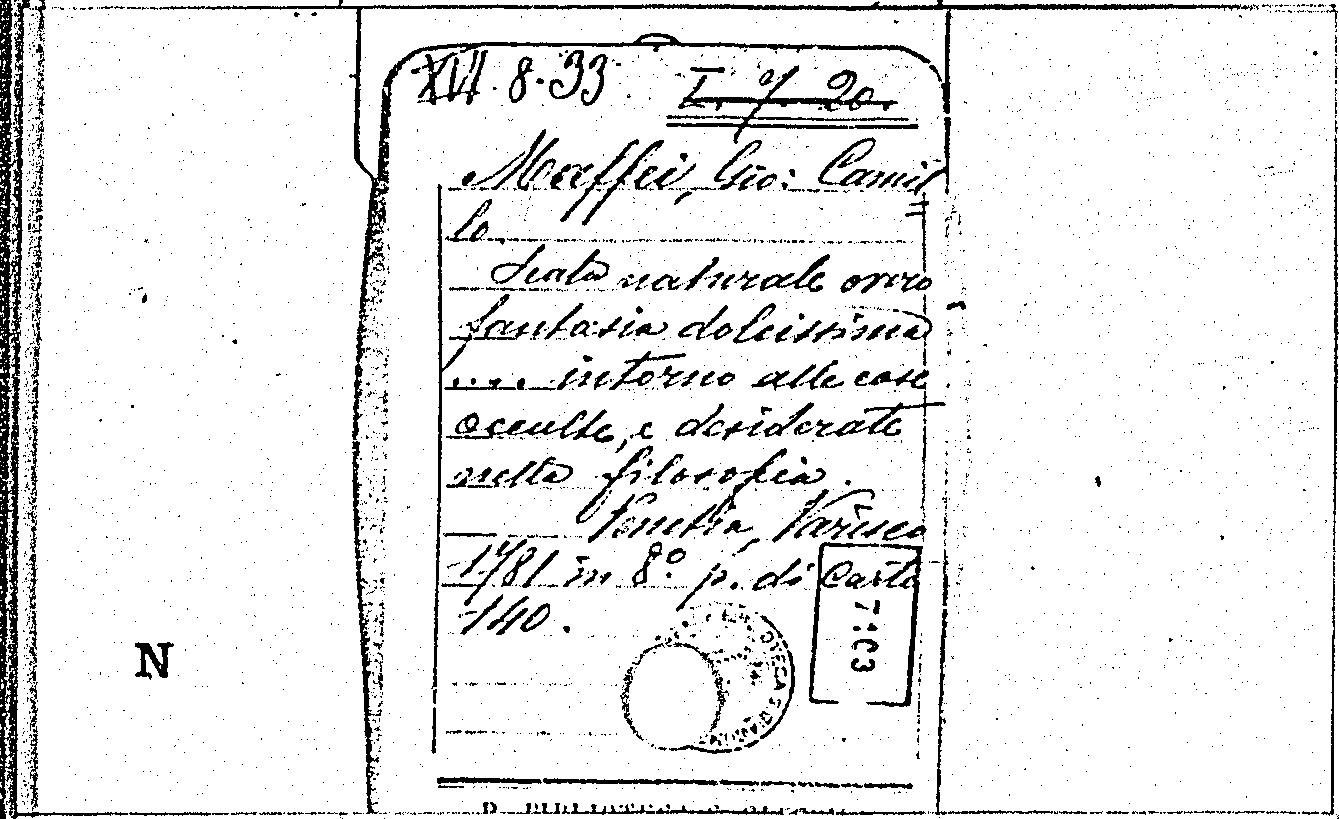 XVI. 8. 33
I. 7. 20.
Maffei, Gio: Camil=
lo
Scala naturale ovvero
fantasia dolcissima
.... intorno alle cose
occulte, e desiderate
nella filosofia.
Venetia, Varisco
1781 in 8.º p. di carte
140.
7103
N